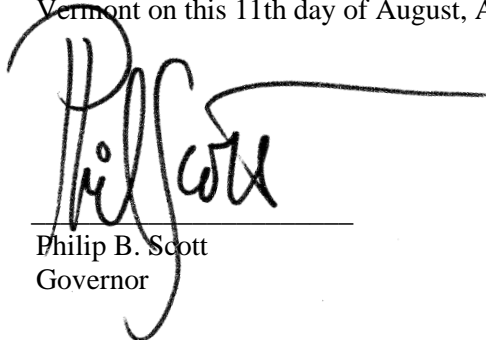 Vermont on this 11th day of August, A
Phil Scott
Philip B. Scott
Governor